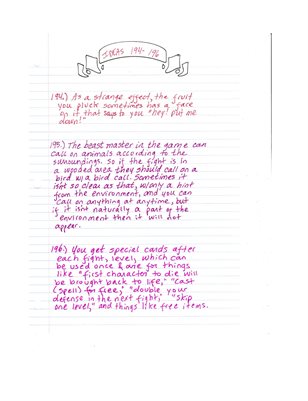 IDEAS 194-196
194.) As a strange effect, the fruit
you pluck sometimes has a face
on it that says to you "hey! put me
down!"
195.) The beast master in the game can
call on animals according to the
surroundings. So if the fight is in
a wooded area they should call on a
bird by a bird call. Sometimes it
isnt so clear as that, w/only a hint
from the environment, and you can
call on anything at anytime, but
if it isnt naturally a part of the
environment then it will not
appear.
196.) You get special cards after
each fight, level, which can
be used once & are for things
like "first character to die will
be brought back to life," "cast
(spell) for free," "double your
defense in the next fight," "skip
one level," and things like free items.